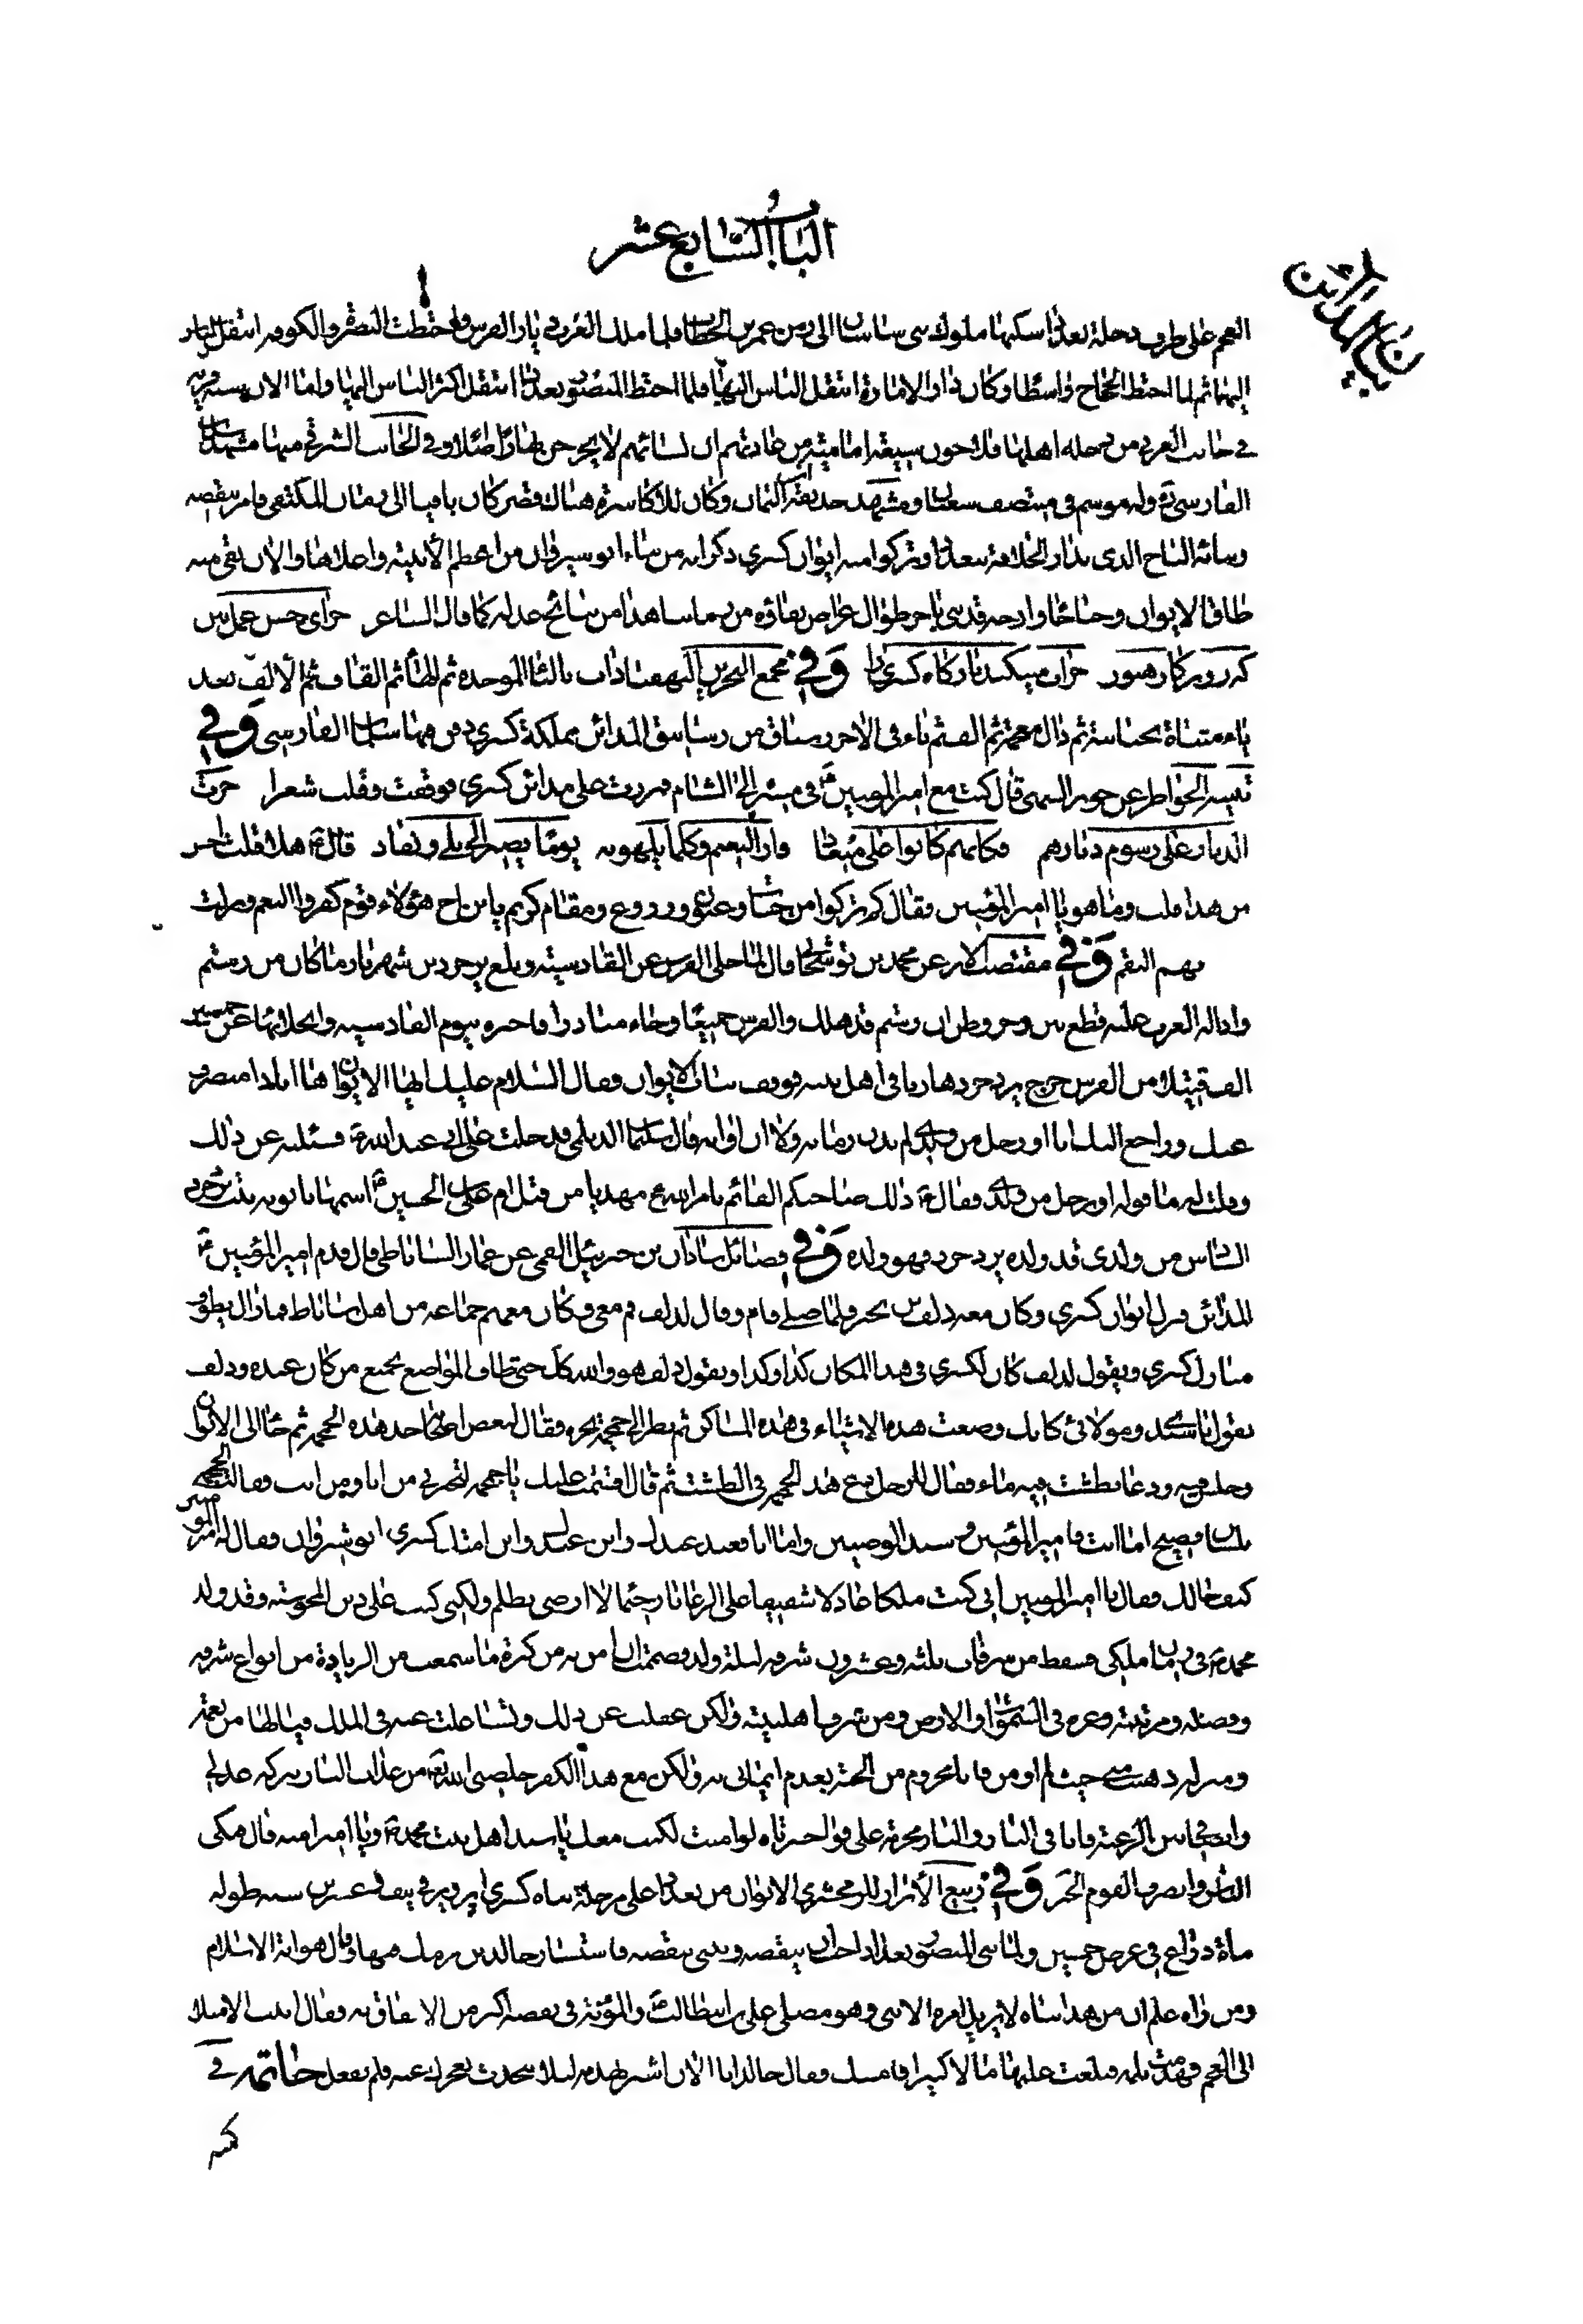 الباب السابع عشر
بيان المدائن
العجم على طرف دجلة بغداد اسكنها ملوك بنى ساسان الى زمن عمر بن الخطاب فلما ملك العرب ديار الفرس واختطت البصرة والكوفة انتقل الناس
اليهما ثم لما اختط الحجاج واسطا وكان دار الامارة انتقل الناس اليها فلما اختط المنصور بغداد انتقل اكثر الناس اليها واما الان شبه قرية
فى جانب الغربى من دجلة اهلها فلاحون شيعة امامية من عادتهم ان نسائهم لا يخرجن نهارا اصلا وفى الجانب الشرقى منها مشهد سلمان
الفارسى ره وله موسم فى منتصف شعبان ومشهد حذيفة بن اليمان وكان للاكاسرة هناك قصر كان باقيا الى زمان المكتفى فامر بنقضه
وبنائه التاج الذى بدار الخلافة ببغداد وتركوا منه ايوان كسرى ذكر انه من بناء انوشيروان من اعظم الابنية واحلاها والان بقى منه
طاق الايوان وجناحا وازجه قد بنى باجر طوال عراض بقاؤه من يومنا هذا من نتائج عدله كما قال الشاعر جزاى حسن عمل بين
كه روزكار هنوز خراب ميكند باركاه كسرى را وفى مجمع البحرين البهقباذات بالباء الموحدة ثم الهاء ثم القاف ثم الالف بعد
ياء مثناة تحتانية ثم ذال معجمة ثم الف ثم تاء فى الاخر رستاق من رساتيق المدائن مملكة كسرى دفن فيها سلمان الفارسى وفى
تنبيه الخواطر عن جويرية السهمى قال كنت مع امير المؤمنين ع فى مسيره الى الشام فمررت على مدائن كسرى فوقفت وقلت شعرا جرت
الرياح على رسوم ديارهم فكانهم كانوا على ميعاد وارى النعيم وكلما يلهى به يوما يصير الى بلى ونفاد قال ع هلا قلت احسن
من هذا قلت وما هو يا امير المؤمنين فقال كم تركوا من جنات وعيون وزروع ومقام كريم يا بن اخ هؤلاء قوم كفروا النعم فنزلت
بهم النقم وفى مقتضب الاثر عن محمد بن نوشجان قال لما جلى الفرس عن القادسية وبلغ يزدجرد بن شهريار ما كان من رستم
وادالة العرب عليه فظن ان رستم قد هلك والفرس جميعا وجاء مبادر واخبره بيوم القادسية وانجلائها عن خمسين
الف قتيل من الفرس خرج يزدجرد هاربا فى اهل بيته فوقف بباب الايوان وقال السلام عليك ايها الايوان ها انا ذا منصرف
عنك وراجع اليك انا او رجل من ولدى لم يدن زمانه ولا ان اوانه قال سليمان الديلمى فدخلت على ابى عبد الله ع فسئلته عن ذلك
وقلت له ما قوله او رجل من ولدى فقال ع ذلك صاحبكم القائم بامر الله ع مهديا من قبل ام على بن الحسين ع اسمها بانويه بنت يزدجرد
السادس من ولدى قد ولده يزدجرد فهو ولده وفى فضائل شاذان بن جبرئيل القمى عن عمار الساباطى قال قدم امير المؤمنين ع
المدائن فنزل ايوان كسرى وكان معه دلف بن بحير فلما صلى قام وقال لدلف قم معى وكان معهم جماعة من اهل ساباط فما زال يطوف
منازل كسرى ويقول لدلف كان لكسرى فى هذا المكان كذا وكذا ويقول دلف هو والله كذلك حتى طاف المواضع بجميع من كان عنده ودلف
يقول يا سيدى ومولاى كانك وضعت هذه الاشياء فى هذه المساكن ثم نظر الى جمجمة نخرة فقال لبعض اصحابه خذ هذه الجمجمة ثم جاء الى الايوان
وجلس فيه ودعا بطشت فيه ماء فقال للرجل دع هذه الجمجمة فى الطشت ثم قال اقسمت عليك يا جمجمة لتخبرينى من انا ومن انت فقالت الجمجمة
بلسان فصيح اما انت فامير المؤمنين وسيد الوصيين واما انا فعبد عبدك وابن عبدك وابن امتك كسرى انوشيروان فقال له امير المؤمنين
كيف حالك فقال يا امير المؤمنين انى كنت ملكا عادلا شفيقا على الرعايا رحيما لا ارضى بظلم ولكن كنت على دين المجوسية وقد ولد
محمد ص فى زمان ملكى فسقط من شرفات ثلثة وعشرون شرفة ليلة ولد فهممت ان امن به من كثرة ما سمعت من الزيادة من انواع شرفه
وفضله ومرتبته وعزه فى السموات والارض ومن شرف اهل بيته ولكن غفلت عن ذلك وتشاغلت عنه فى الملك فيا لها من نعمة
ومنزلة ذهبت منى حيث لم اومن فانا محروم من الجنة بعدم ايمانى به ولكن مع هذا الكفر خلصنى الله تع من عذاب النار ببركة عدلى
وانصافى بين الرعية فانا فى النار والنار محرمة على فوا حسرتاه لو امنت لكنت معك يا سيد اهل بيت محمد ص ويا امير امته قال فبكى
الناس وانصرف القوم الخبر وفى ربيع الابرار للزمخشرى الايوان من بغداد على مرحلة بناه كسرى اپرويز فى نيف وعشرين سنة طوله
ماة ذراع فى عرض خمسين ولما بنى المنصور بغداد احب ان ينقضه ويبنى بنقضه فاستشار خالد بن برمك فنهاه وقال هو اية الاسلام
ومن راه علم ان من هذا بناه لا يزيل امره الا نبى وهو مصلى على بن ابيطالب ع والمؤنة فى نقضه اكثر من الارتفاق به فقال ابيت الا ميلا
الى العجم فهدمت ثلمة فبلغت عليها مالا كثيرا فامسك فقال خالد انا الان اشير بهدمه لئلا يتحدث بعجزك عنه فلم يفعل خاتمة فى